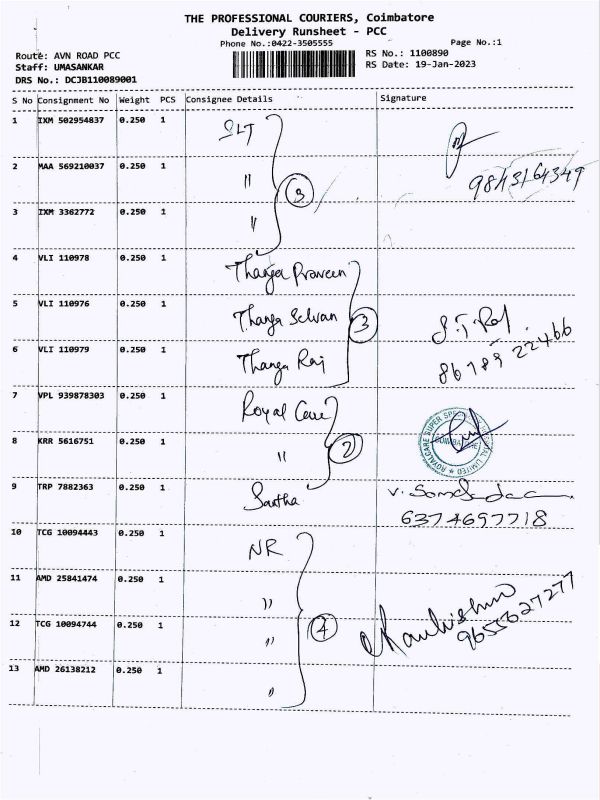 THE PROFESSIONAL COURIERS, Coimbatore
Delivery Runsheet - PCC
Phone No.:0422-3505555
Page No.:1
Route: AVN ROAD PCC
RS No.: 1100890
Staff: UMASANKAR
RS Date: 19-Jan-2023
DRS No.: DCJB110089001
S No Consignment No Weight PCS Consignee Details Signature
1 IXM 502954837 0.250 1 SLT
2 MAA 569210037 0.250 1 〃 3 9843164349
3 IXM 3362772 0.250 1 〃
4 VLI 110978 0.250 1 Thanga Praveen
5 VLI 110976 0.250 1 Thanga Selvan 3 S.T. Raj
6 VLI 110979 0.250 1 Thanga Raj 86789 22466
7 VPL 939878303 0.250 1 Royal Care
8 KRR 5616751 0.250 1 〃 2 ROYALCARE SUPER SPECIALITY HOSPITAL LIMITED COIMBATORE
9 TRP 7882363 0.250 1 Santha
6374697718
10 TCG 10094443 0.250 1 NR
11 AMD 25841474 0.250 1 〃
12 TCG 10094744 0.250 1 〃 4 9655627277
13 AMD 26138212 0.250 1 〃